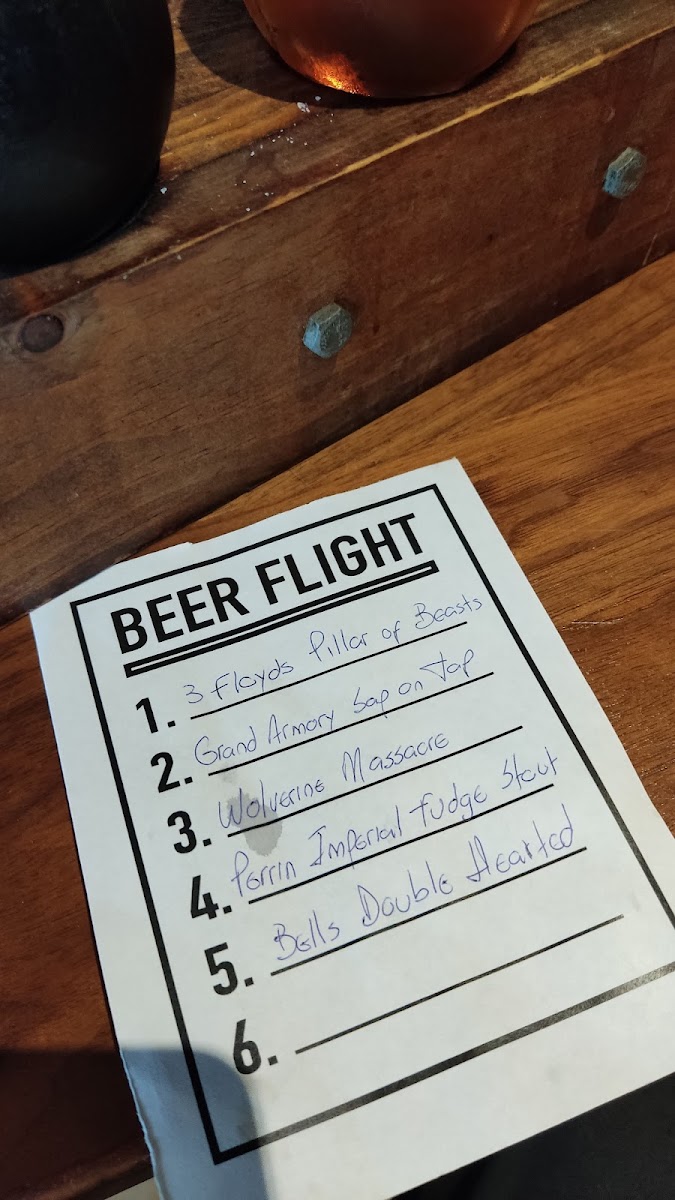 BEER FLIGHT
1. 3 Floyds Pillar of Beasts
2. Grand Armory Sap on Tap
3. Wolverine Massacre
4. Perrin Imperial fudge Stout
5. Bells Double Hearted
6.